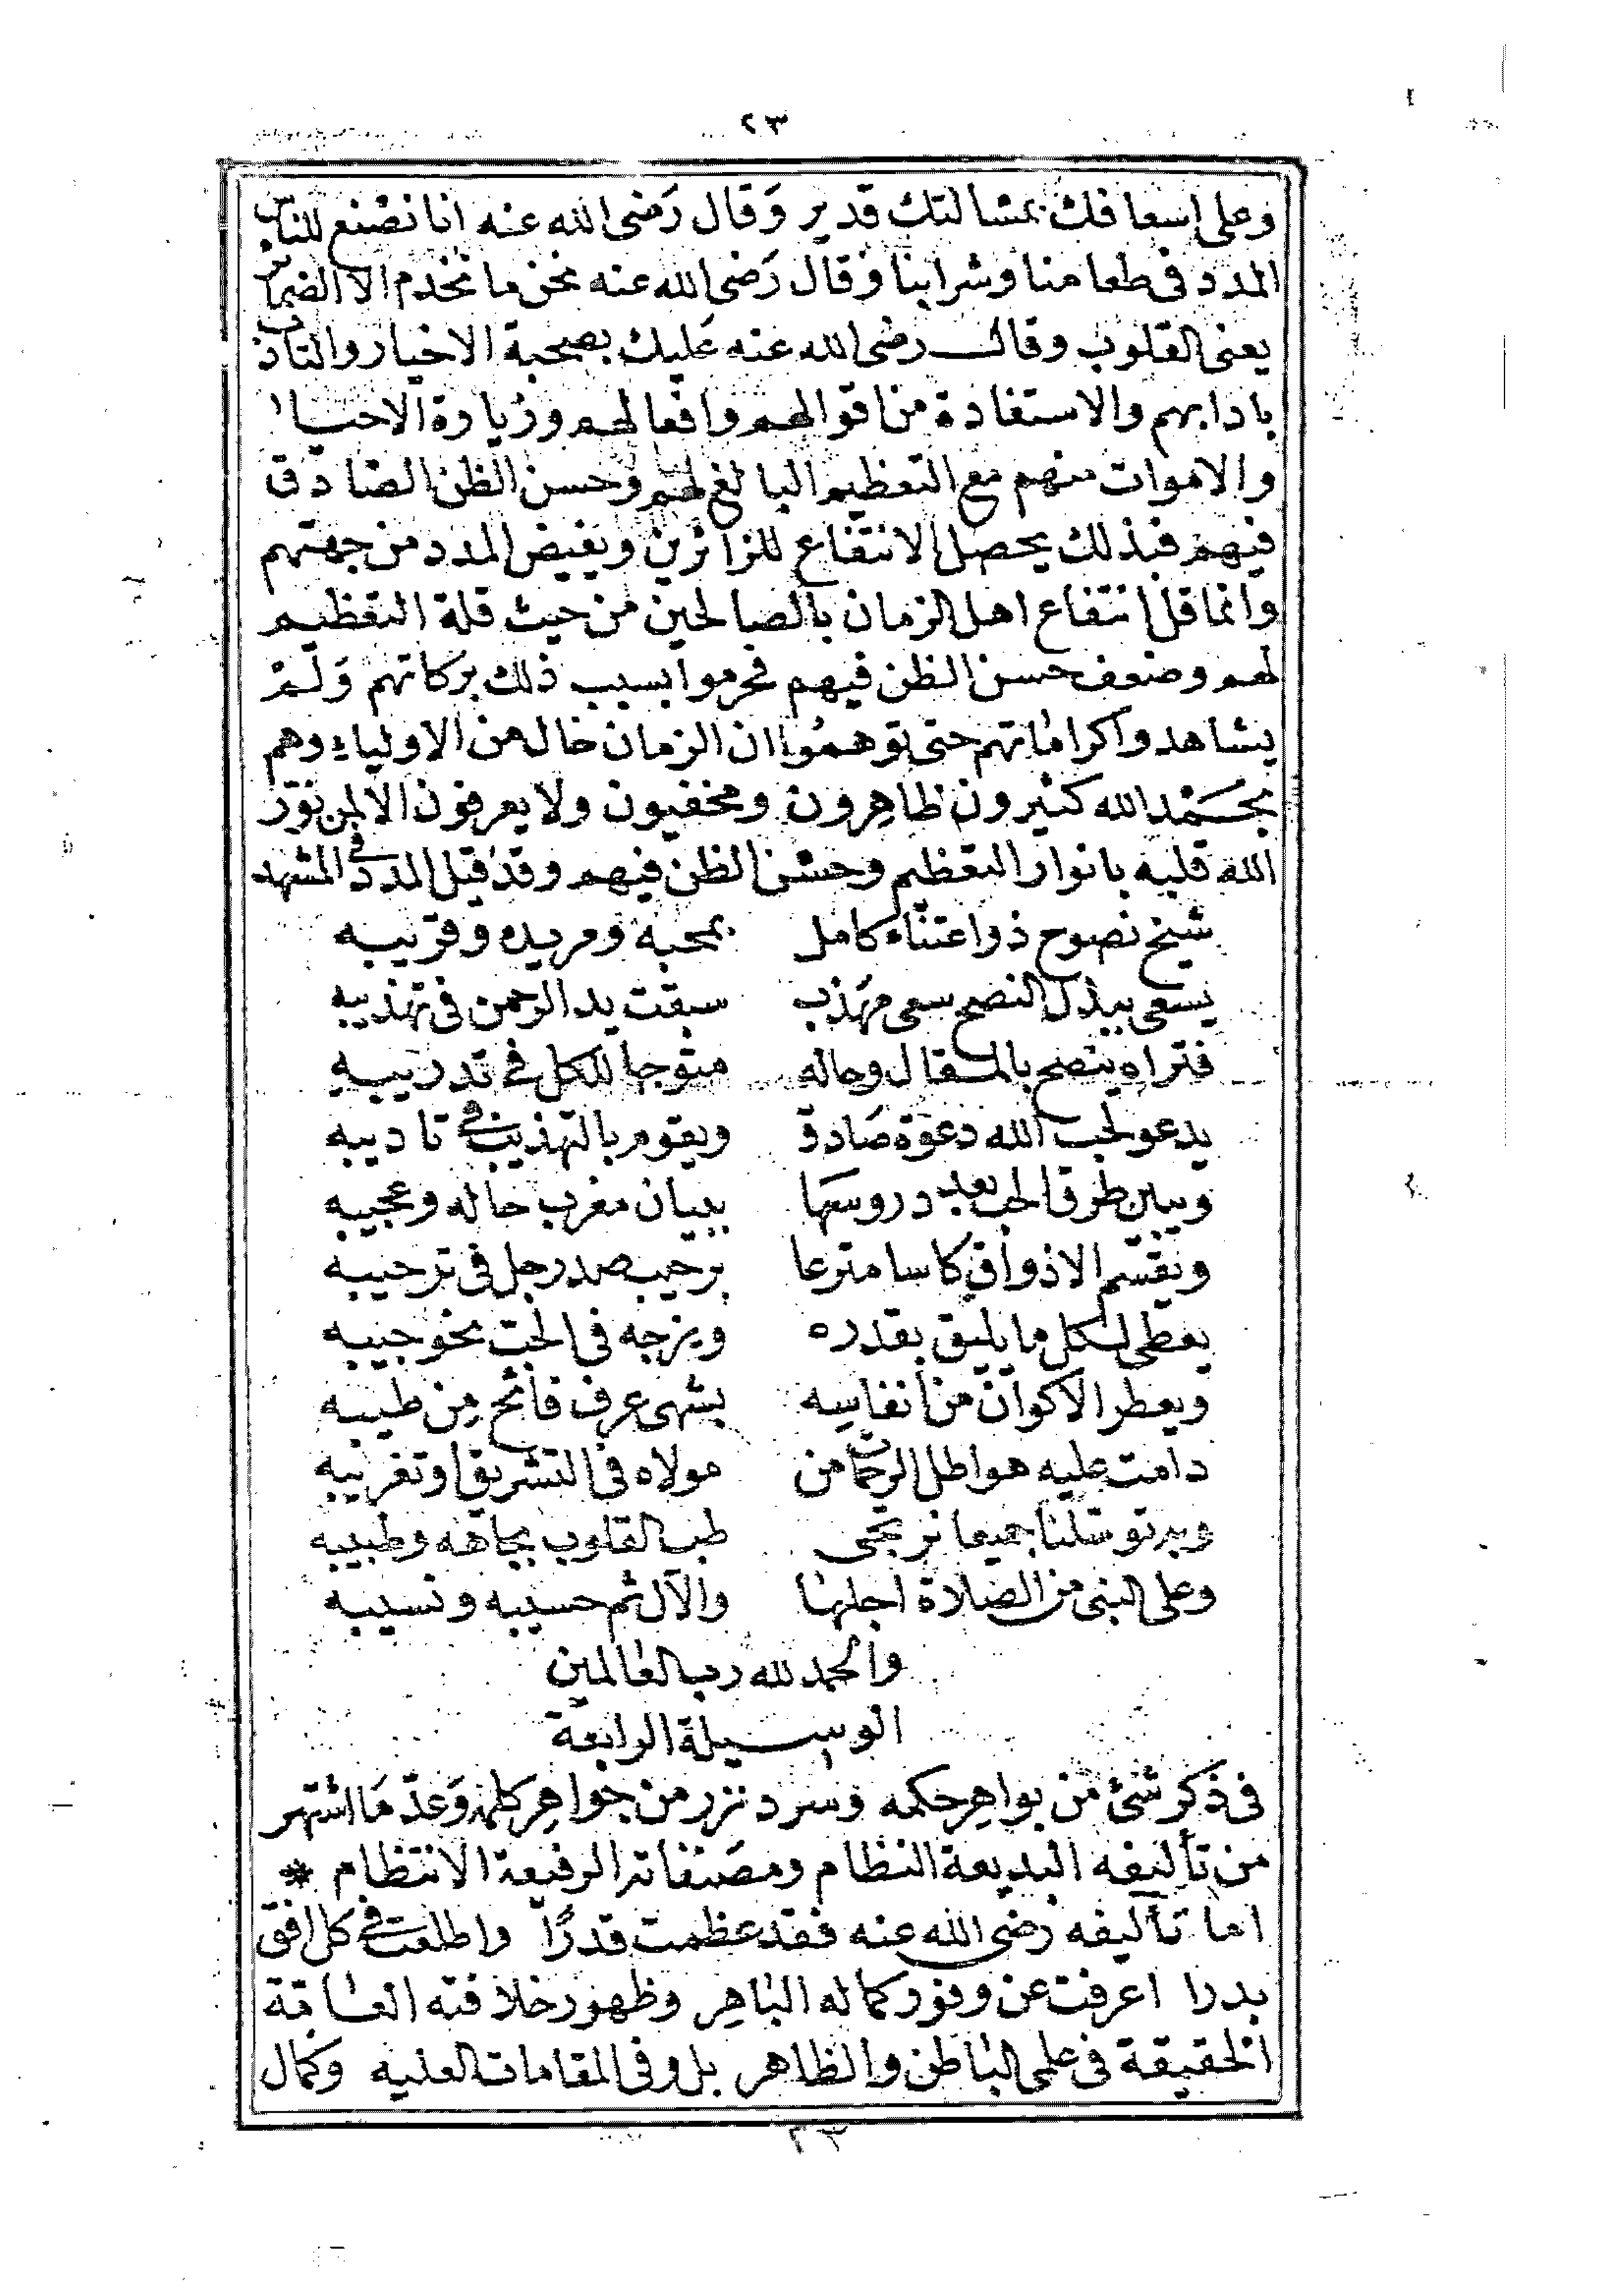 ٢٣
وعلى اسعافك بمسالتك قدير وَقال رَضى الله عنه انا نضنع للناس
المدد فى طعامنا وشرابنا وقال رَضى الله عنه نحن ما نخدم الا الضمائر
يعنى القلوب وقال رضى الله عنه عَليك بصحبة الاخيار والتادب
بادابهم والاستفادة من اقوالهم وافعالهم وزيارة الاحيا
والاموات منهم مع التعظيم البالغ لهم وحسن الظن الصادق
فيهم فبذلك يحصل الانتفاع للزائرين ويفيض المدد من جهتهم
وانما قل انتفاع اهل الزمان بالصالحين من حيث قلة التعظيم
لهم وضعف حسن الظن فيهم فحرموا بسبب ذلك بركاتهم وَلَمْ
يشاهدوا كراماتهم حتى توهموا ان الزمان خال من الاولياء وهم
بحَمْد الله كثيرون ظاهِرون ومخفيون ولا يعرفون الا لمن نوّر
الله قلبه بانوار التعظيم وحسن الظن فيهم وقد قيل المدد فى المشهد
شيخ نصوح ذو اعتناء كامل بمحبه ومريده وقريبه
يسعى ببذل النصح سعى مهَذب سبقت يد الرحمن فى تهذيبه
فتراه ينصح بالمقال وحاله متوجها للكل فى تدريبه
يدعو لحب الله دعوة صَادق ويقوم بالتهذيب فى تاديبه
ويبين طرق الحب بعد دروسهَا ببيان مغرب حاله وعجيبه
ويقسّم الاذواق كاسا مترعا برحيب صدر جل فى ترحيبه
يعطى لكل ما يليق بقدره ويزجه فى الحبّ نحو حبيبه
ويعطر الاكوان من أنفاسِه بشهى عرف فائح مِن طيبه
دامت عليه هواطل الرحمات من مولاه فى التشريق او تغريبه
وبه توسلنا جميعا نرتجى طب القلوب بجاهه وطبيبه
وعلى النبى من الصلاة اجلها والآل ثم حسيبه ونسيبه
والحمد لله رب العالمين
الوسيلة الرابعة
فى ذكر شئ من بواهِر حكمه وسرد نزر من جواهِر كلمه وَعدّ مَا اشتهر
من تأليفه البديعة النظام ومصَنفاته الرفيعة الانتظام *
اما تآليفه رضى الله عنه فقد عظمت قدرًا واطلعت فى كل افق
بدرا اعرفت عن وفور كماله البَاهِر وظهور خلافته العامة
الحقيقة فى علمى البَاطن والظاهر بل وفى المقامات العليه وكمال
٢٣